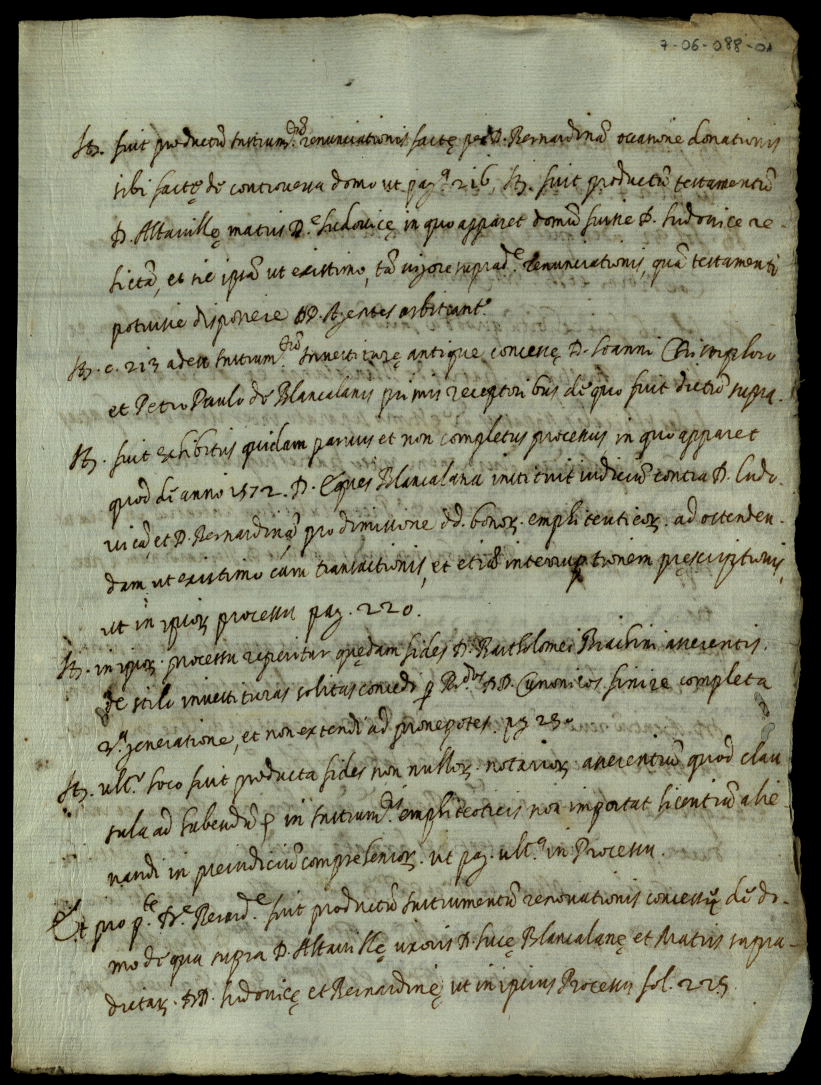 7-06-088-01
It. fuit productũ Instrum.tũ renunciationis factę per D. Bernardinã occasione donationis
sibi factę de controversa domo ut pag.ª 216, It. fuit productũ testamentũ
D. Altavillę matris D.ę Ludovicę in quo apparet domũ fuisse D. Ludovice re-
lictã, et sic ipsã ut existimo, tã vigore suprad.ę renunciationis, quã testamenti
potuisse disponere DD. Agentes arbitrant.r
It. c. 213 adest Instrum.tũ Investiturę antique concessę D. Ioanni Christophoro
et Petro Paulo de Blancalanis primis receptoribus de quo fuit dictũ supra.
It. fuit exhibitus quidam parvus et non completus processus in quo apparet
quod de anno 1572. D. Eques Blancalana instituit iudiciũ contra D. Ludo-
vicã et D. Bernardinã pro dimissione dd. bonoꝝ. emphiteuticoꝝ. ad ostenden-
dam ut existimo cãm transactionis, et etiã interruptionem pręscriptionis,
ut in ipsoꝝ processu pag. 220.
It. in ipsoꝝ. processu reperitur quędam fides D. Bartholomei Brachini asserentis.
de stilo investituras solitas concedi ꝑ R.dos DD. Canonicos finire completa
3.ª generatione, et non extendi ad pronepotes. pag 230
It. ult.º loco fuit producta fides non nulloꝝ. notarioꝝ asserentiũ quod clau
sula ad habendũ ꝑ in Instrum.tis emphiteoticis non importat licentiã alie-
nandi in preiudiciũ comprehensoꝝ. ut pag. ult.ª in Processu.
Et pro p.te D.ę Rerard.ę fuit productũ Instrumentũ renovationis concessę de do-
mo de qua supra D. Altavillę uxoris D. Lucę Blancalanę et Matris supra-
dictaꝝ. DD. Ludovicę et Bernardinę ut in ipsius Processu fol. 225.